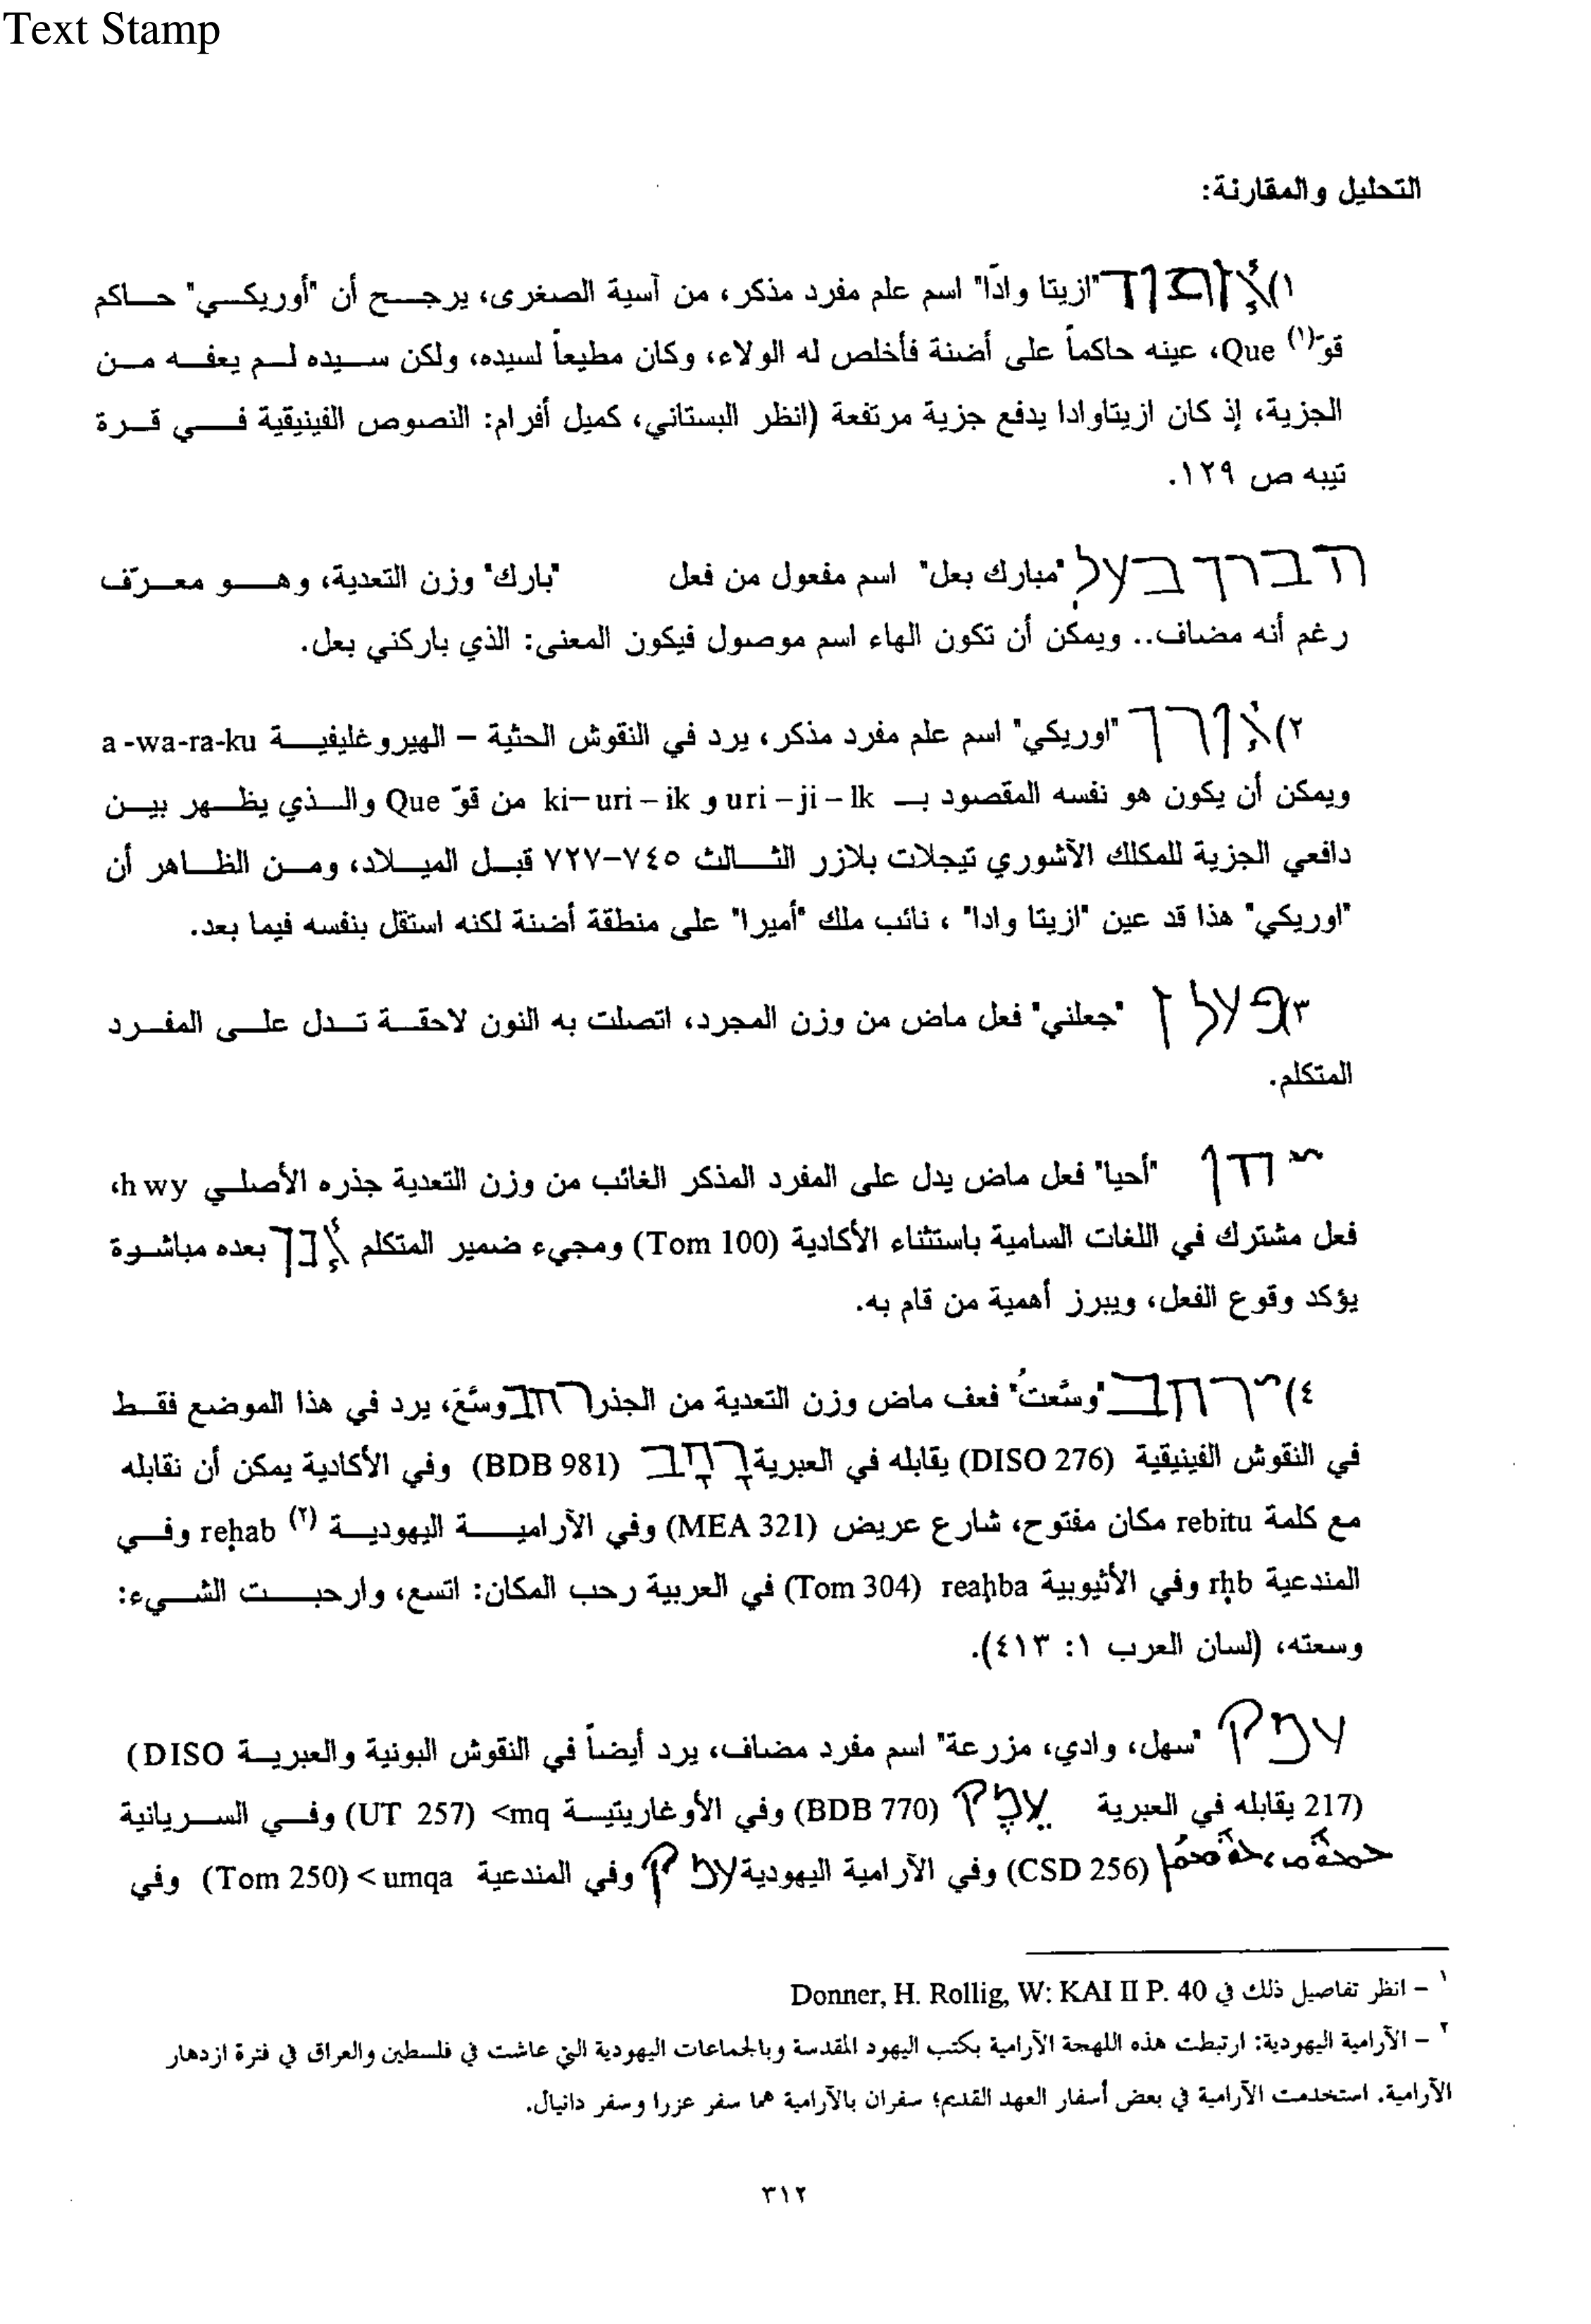 Text Stamp
التحليل والمقارنة:
١) "ازيتا وادّا" اسم علم مفرد مذكر، من آسية الصغرى، يرجح أن "أوريكي" حاكم
قوّ(١) Que، عينه حاكماً على أضنة فأخلص له الولاء، وكان مطيعاً لسيده، ولكن سيده لم يعفه من
الجزية، إذ كان ازيتاوادا يدفع جزية مرتفعة (انظر البستاني، كميل أفرام: النصوص الفينيقية في قرة
تيبه ص ١٢٩.
הברך בעל "مبارك بعل" اسم مفعول من فعل "بارك" وزن التعدية، وهو معرّف
رغم أنه مضاف.. ويمكن أن تكون الهاء اسم موصول فيكون المعنى: الذي باركني بعل.
٢) אורך "اوريكي" اسم علم مفرد مذكر، يرد في النقوش الحثية – الهيروغليفية a -wa-ra-ku
ويمكن أن يكون هو نفسه المقصود بـ uri – ji – lk و ki– uri – ik من قوّ Que والذي يظهر بين
دافعي الجزية للمكلك الآشوري تيجلات بلازر الثالث ٧٤٥–٧٢٧ قبل الميلاد، ومن الظاهر أن
"اوريكي" هذا قد عين "ازيتا وادا" ، نائب ملك "أميرا" على منطقة أضنة لكنه استقل بنفسه فيما بعد.
٣) פעל ן "جعلني" فعل ماض من وزن المجرد، اتصلت به النون لاحقة تدل على المفرد
المتكلم.
"أحيا" فعل ماض يدل على المفرد المذكر الغائب من وزن التعدية جذره الأصلي hwy،
فعل مشترك في اللغات السامية باستثناء الأكادية (Tom 100) ومجيء ضمير المتكلم אנך بعده مباشرة
يؤكد وقوع الفعل، ويبرز أهمية من قام به.
٤) ירחב "وسَّعتُ" فعف ماض وزن التعدية من الجذر רחב وسَّعَ، يرد في هذا الموضع فقط
في النقوش الفينيقية (DISO 276) يقابله في العبرية רָחָב (BDB 981) وفي الأكادية يمكن أن نقابله
مع كلمة rebitu مكان مفتوح، شارع عريض (MEA 321) وفي الآرامية اليهودية (٢) reḥab وفي
المندعية rḥb وفي الأثيوبية reaḥba (Tom 304) في العربية رحب المكان: اتسع، وارحبت الشيء:
وسعته، (لسان العرب ١: ٤١٣).
עמק "سهل، وادي، مزرعة" اسم مفرد مضاف، يرد أيضاً في النقوش البونية والعبرية (DISO
217) يقابله في العبرية עמק (BDB 770) وفي الأوغاريتية <mq (UT 257) وفي السريانية
(CSD 256) وفي الآرامية اليهودية עמק وفي المندعية <umqa (Tom 250) وفي
١ – انظر تفاصيل ذلك في Donner, H. Rollig, W: KAI II P. 40
٢ – الآرامية اليهودية: ارتبطت هذه اللهجة الآرامية بكتب اليهود المقدسة وبالجماعات اليهودية التي عاشت في فلسطين والعراق في فترة ازدهار
الآرامية. استخدمت الآرامية في بعض أسفار العهد القديم؛ سفران بالآرامية هما سفر عزرا وسفر دانيال.
٣١٢